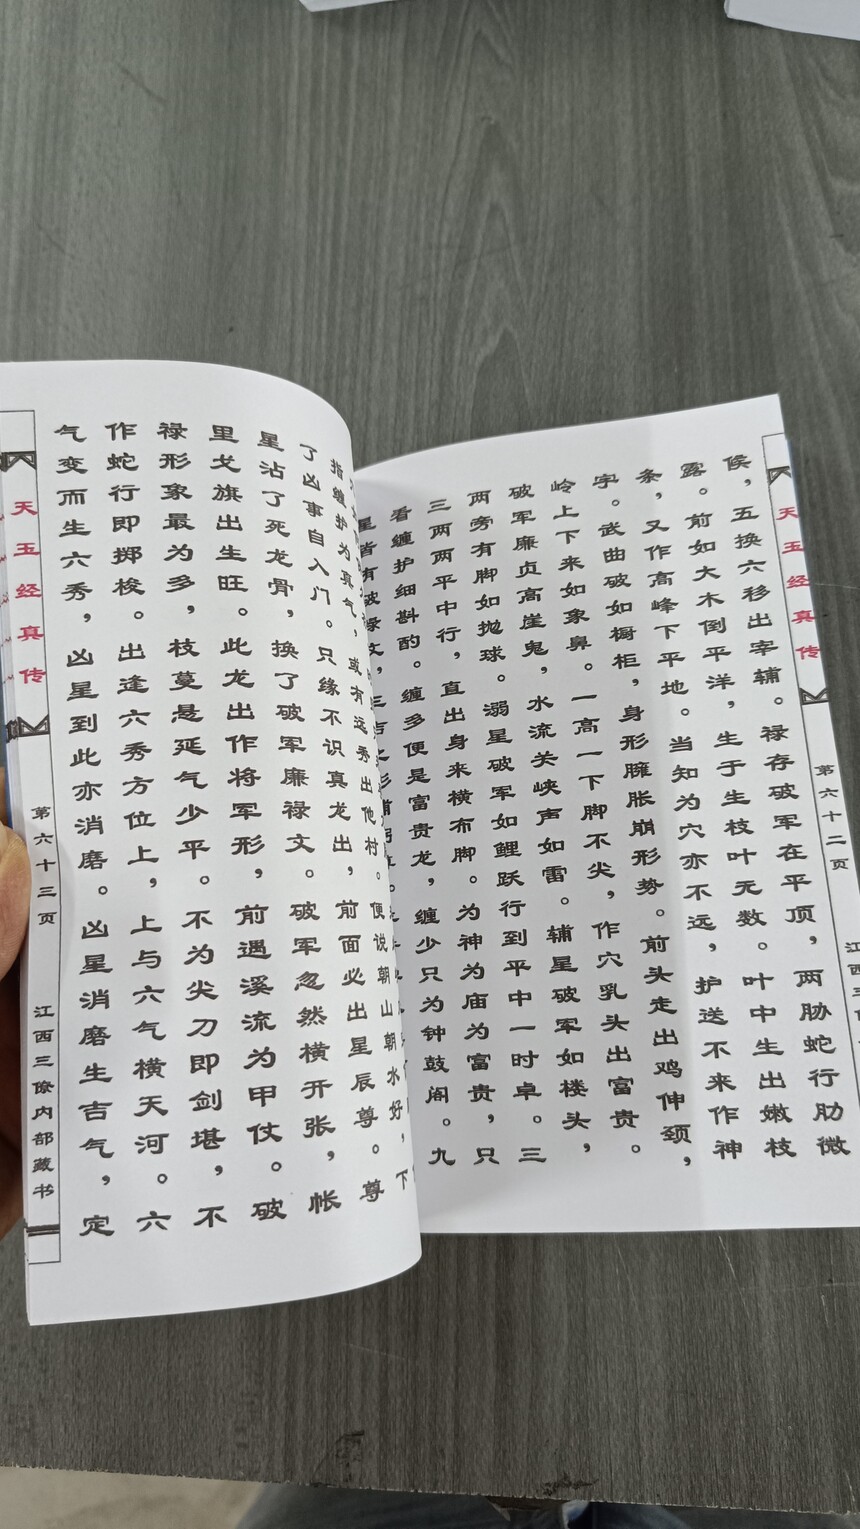 天玉经真传
第六十二页
候，五换六移出宰辅。禄存破军在平顶，两胁蛇行肋微
露。前如大木倒平洋，生于生枝叶无数。叶中生出嫩枝
条，又作高峰下平地。当知为穴亦不远，护送不来作神
字。武曲破如橱柜，身形臃胀崩形势。前头走出鸡伸颈，
岭上下来如象鼻。一高一下脚不尖，作穴乳头出富贵。
破军廉贞高崖鬼，水流关峡声如雷。辅星破军如楼头，
两旁有脚如抛球。溺星破军如鲤跃行到平中一时卓。三
三两两平中行，直出身来横布脚。为神为庙为富贵，只
看缠护细斟酌。缠多便是富贵龙，缠少只为钟鼓阁。九
星皆有破禄文，三吉之形辅弼尊。
指缠护为真气，或有远秀出他村。便说朝山朝水好，下
了凶事自入门。只缘不识真龙出，前面必出星辰尊。尊
星沾了死龙骨，换了破军廉禄文。破军忽然横开张，帐
里戈旗出生旺。此龙出作将军形，前遇溪流为甲仗。破
禄形象最为多，枝蔓悬延气少平。不为尖刀即剑堪，不
作蛇行即掷梭。出逢六秀方位上，上与六气横天河。六
气变而生六秀，凶星到此亦消磨。凶星消磨生吉气，定
天玉经真传
第六十三页
江西三僚内部藏书